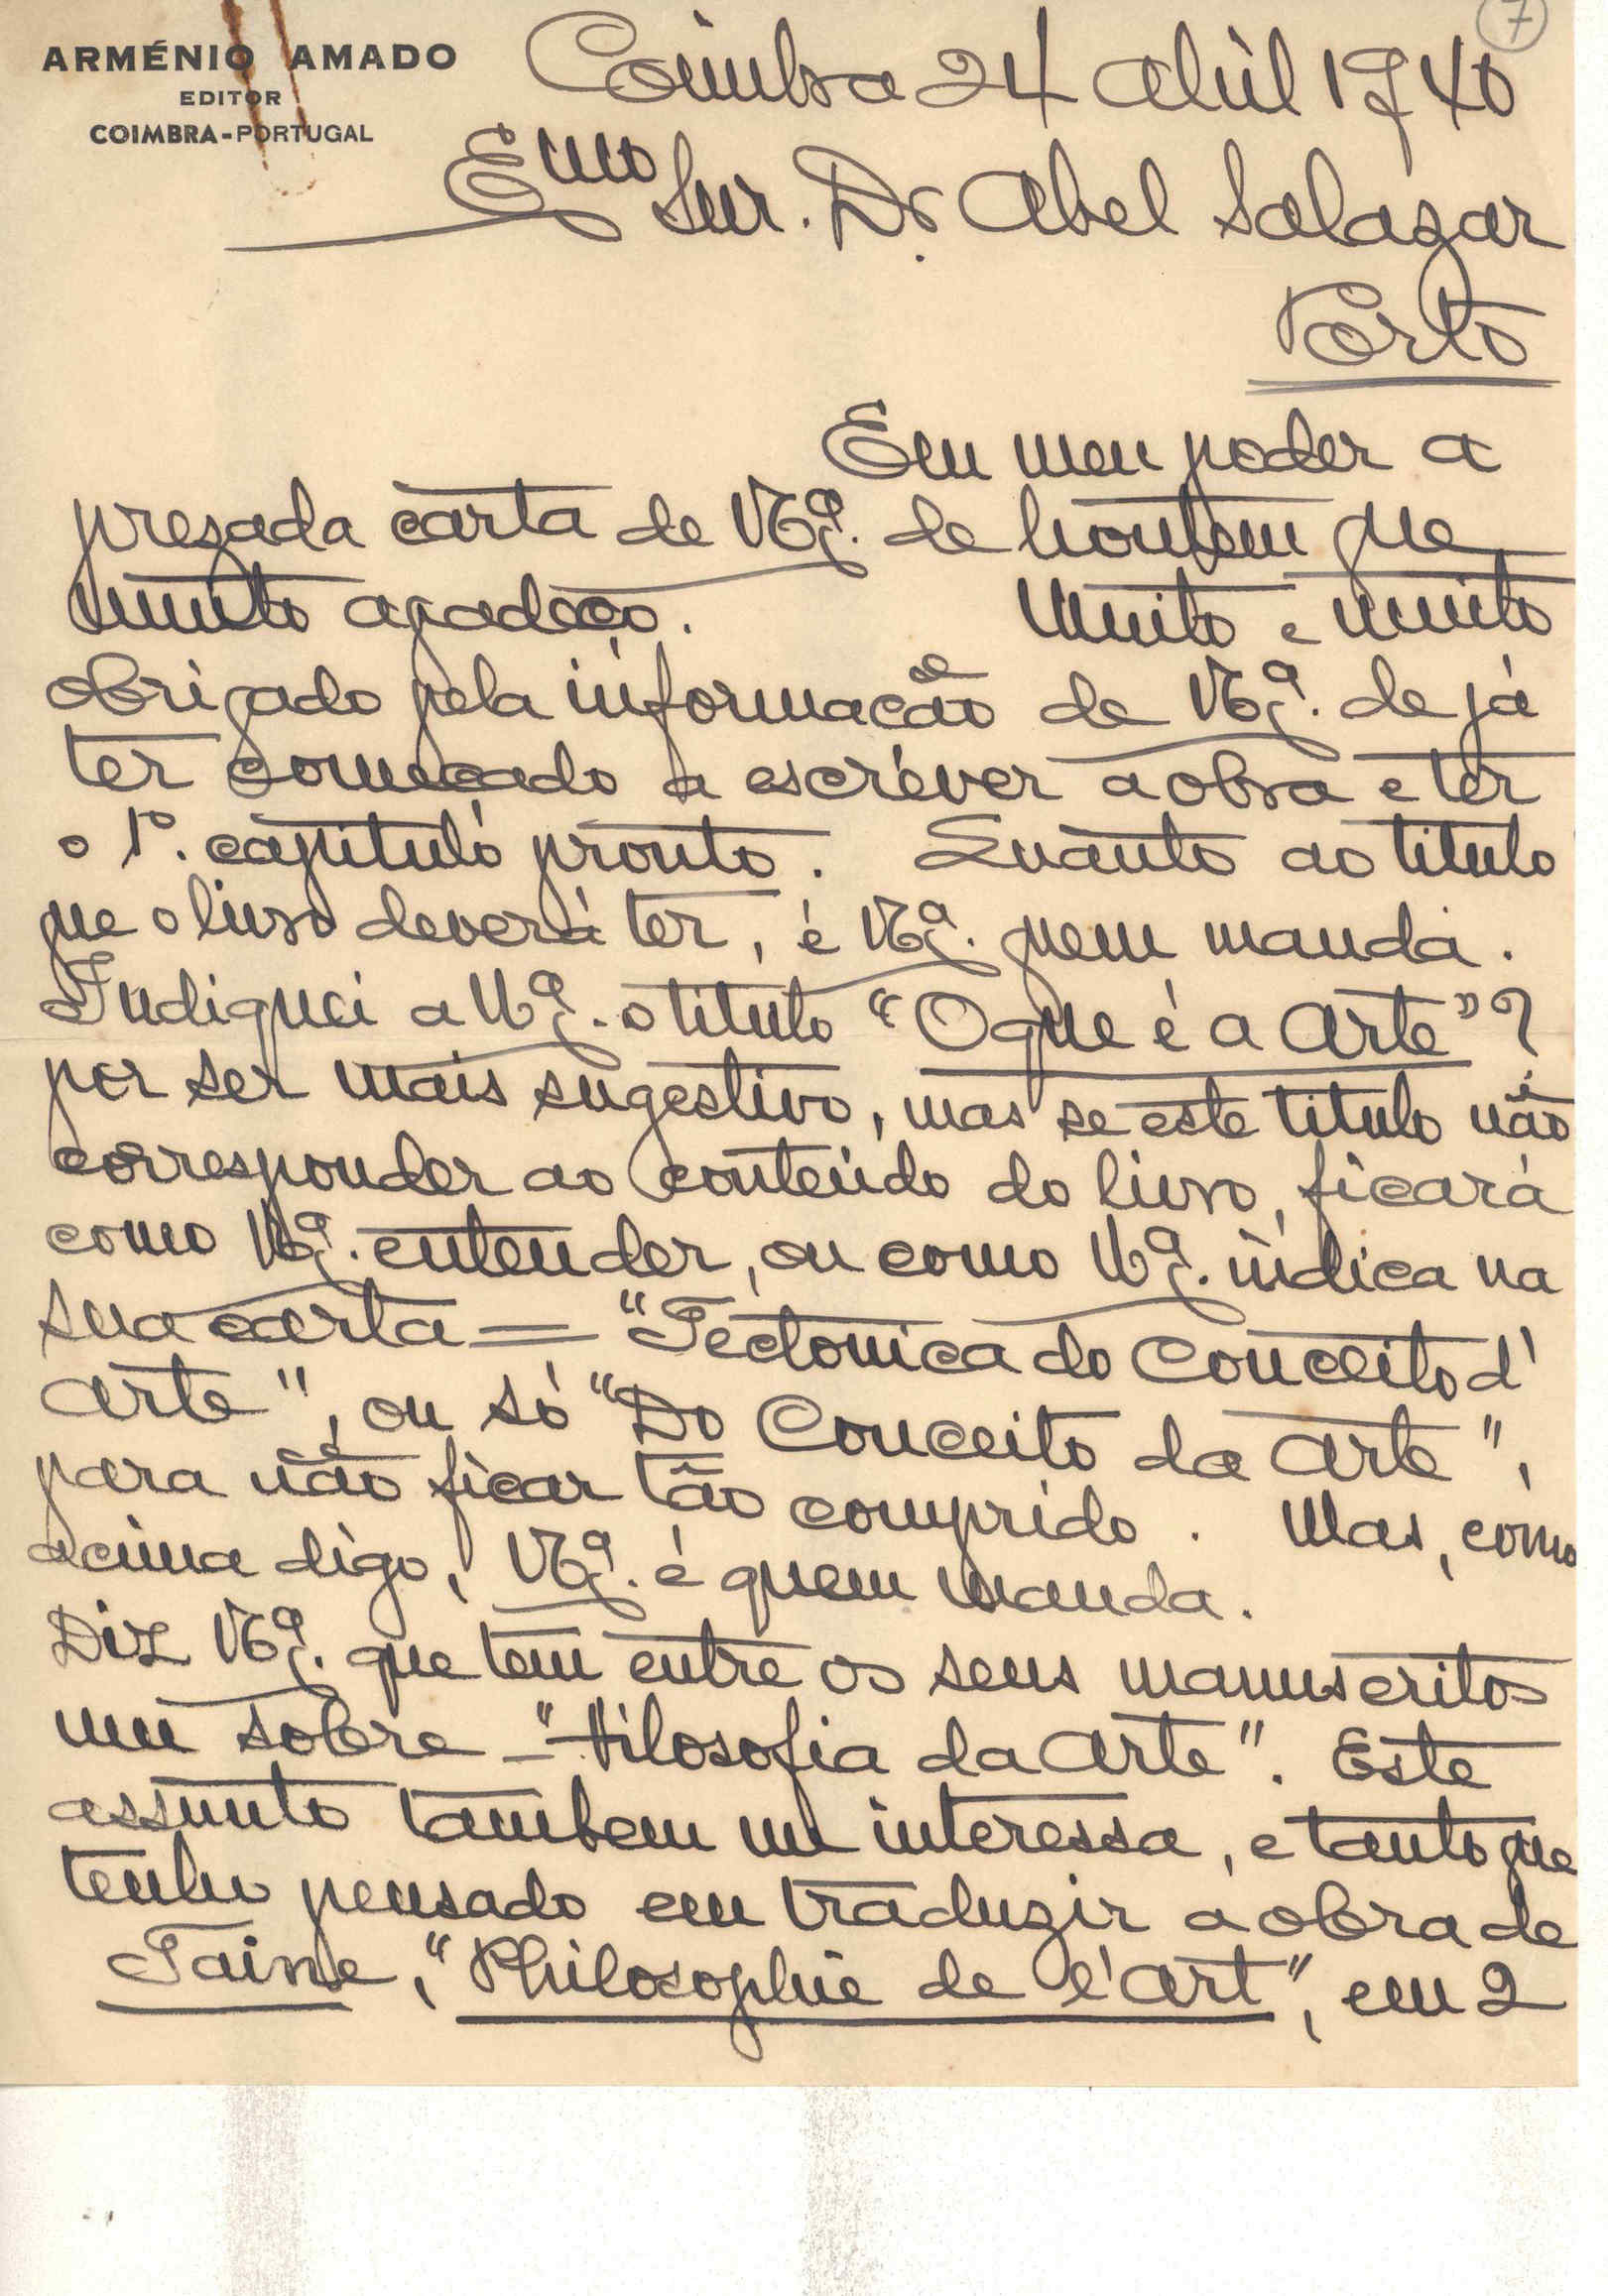 7
ARMÉNIO AMADO
EDITOR
COIMBRA-PORTUGAL
Coimbra 24 Abril 1940
Exmo Snr. Dr. Abel Salazar
Porto
Em meu poder a
prezada carta de V. Exª. de hontem que
muito agradeço. Muito e muito
obrigado pela informação de V. Exª. de já
ter começado a escrever a obra e ter
o 1º. capitulo pronto. Quanto ao titulo
que o livro deverá ter, é V. Exª. quem manda.
Indiquei a V. Exª. o titulo "O que é a Arte"?
por ser mais sugestivo, mas se este titulo não
corresponder ao conteúdo do livro, ficará
como V. Exª. entender, ou como V. Exª. indica na
sua carta = "Tectonica do Conceito d'
Arte", ou só "Do Conceito da Arte",
para não ficar tão comprido. Mas, como
acima digo, V. Exª. é quem manda.
Diz V. Exª. que tem entre os seus manuscritos
um sobre - "Filosofia da Arte". Este
assunto tambem me interessa, e tanto que
tenho pensado em traduzir a obra de
Taine, "Philosophie de l'Art", em 2